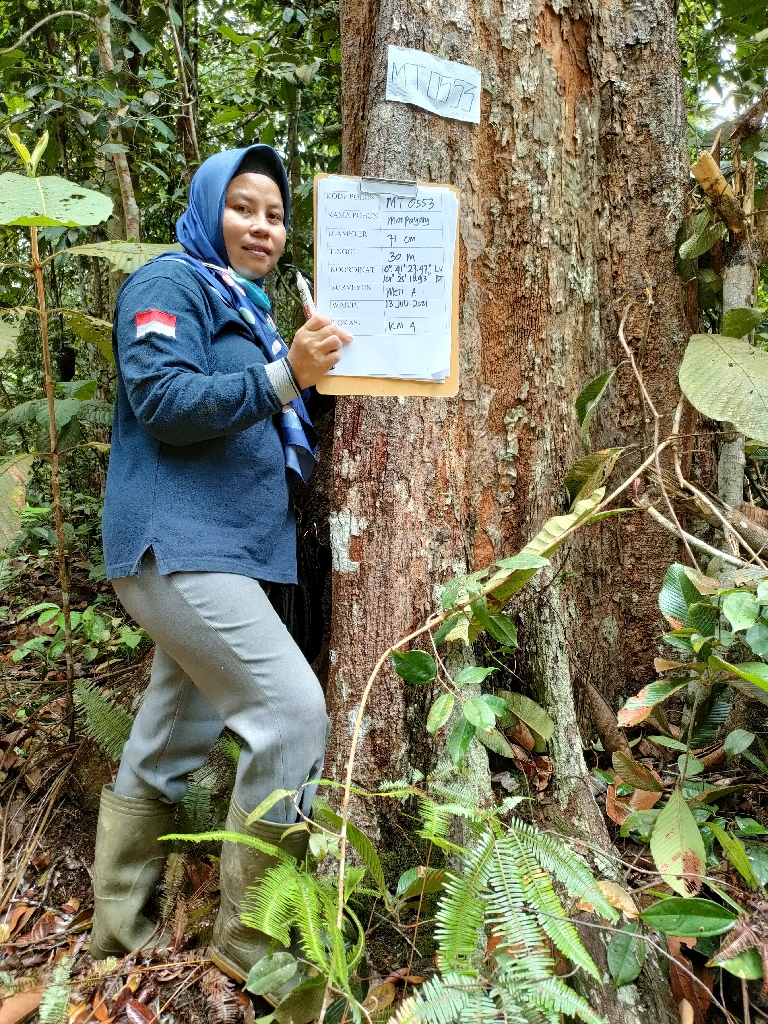 MT 0553
KODE POHON MT 0553
NAMA POHON Marpayang
DIAMETER 71 cm
TINGGI 30 M
KOORDINAT 10° 41' 27.47" LU
101° 25' 18.93" BT
SURVEYOR Meti A
WAKTU 13 Juli 2021
LOKASI KM 4